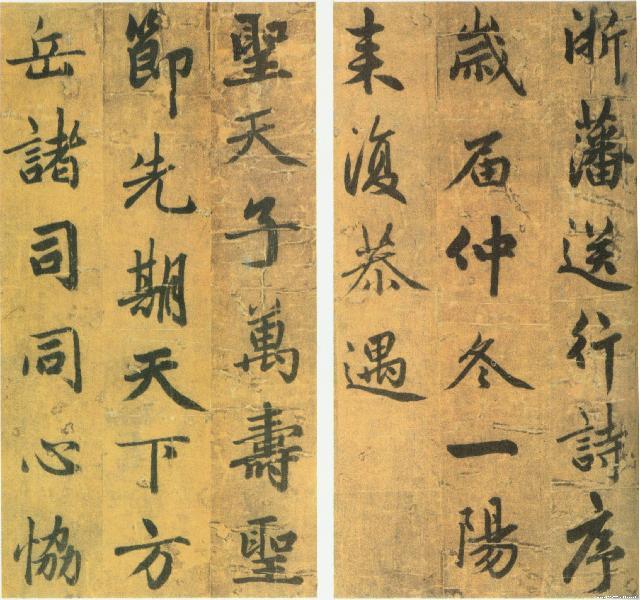 浙藩送行詩序
歲届仲冬一陽
来復恭遇
聖天子萬壽聖
節先期天下方
岳諸司同心恊